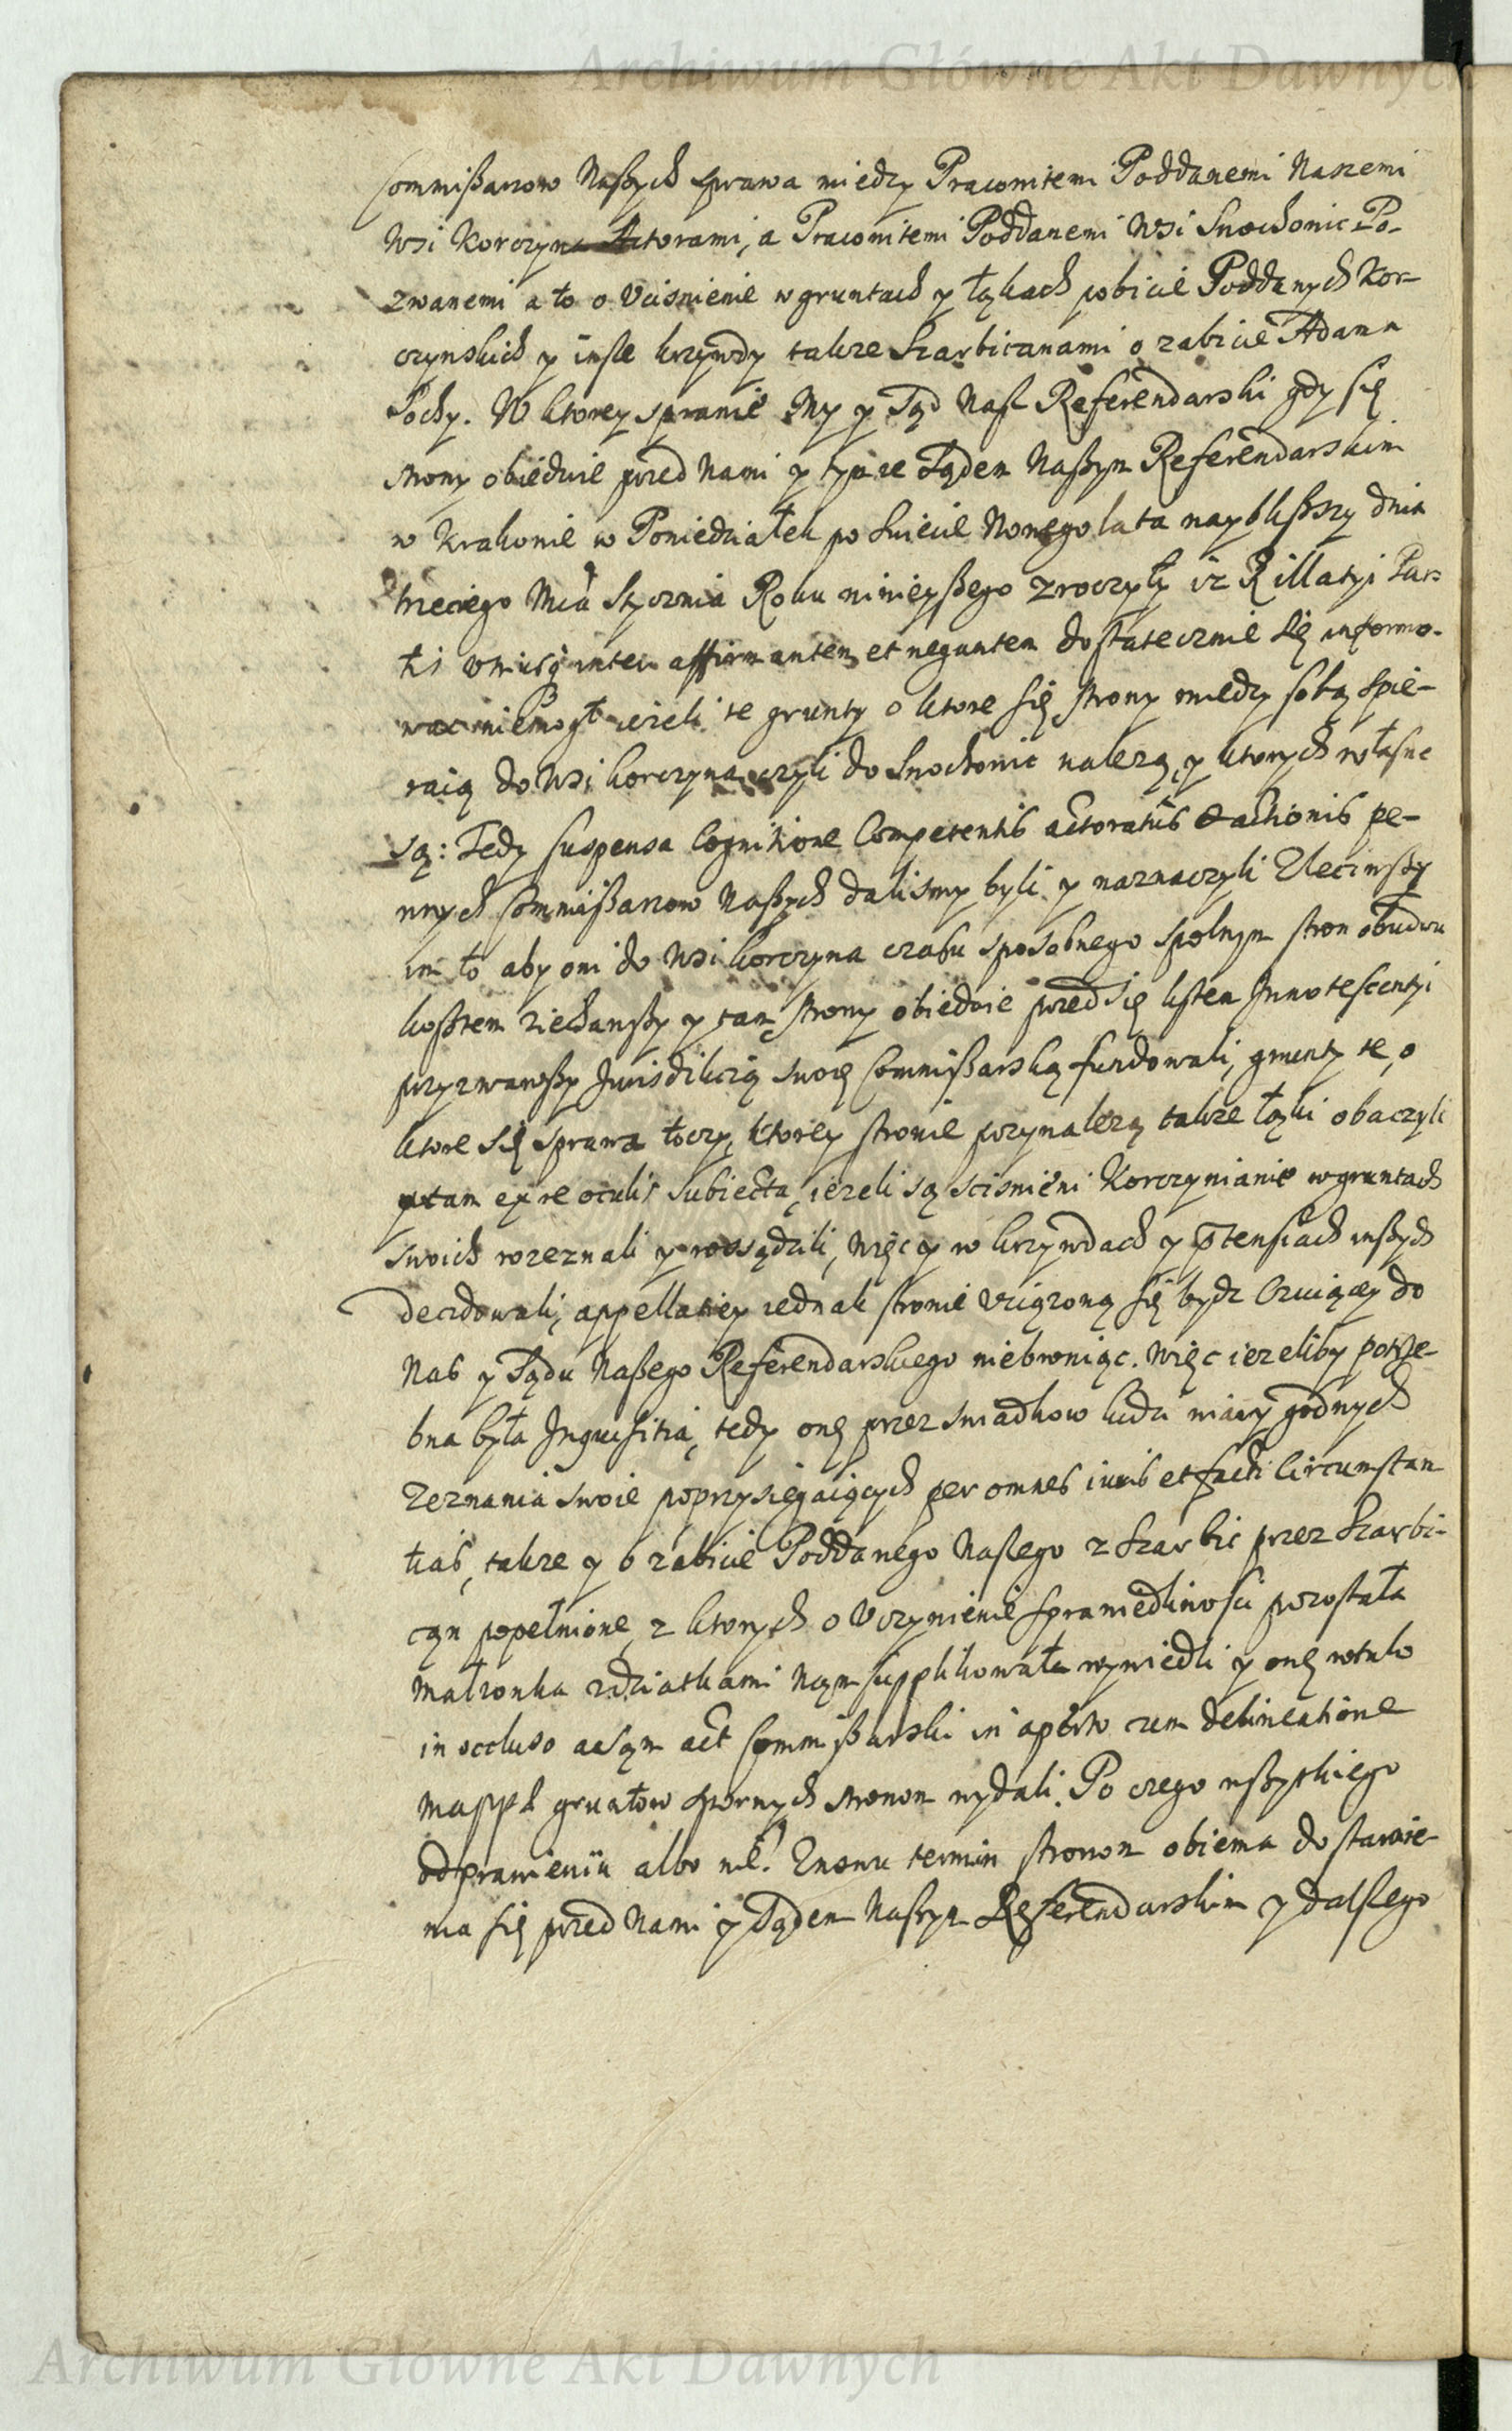 Archiwum Główne Akt Dawnych
Commissarzow Naszych sprawa między Pracowitemi Poddanemi Naszemi
Wsi Korczyna Actorami, a Pracowitemi Poddanemi Wsi Snochowic Po-
zwanemi a to o Vcisnienie w gruntach y łąkach pobicie Poddanych Kor-
czynskich y insze krzywdy także Szarbicanami o zabicie Adama
Sochy. W ktorey sprawie My y Sąd Nasz Referendarski gdy się
strony obiedwie przed Nami y tymże Sądem Naszym Referendarskim
w Krakowie w Poniedziałek po Swięcie Nowego lata naybliższy dnia
trzeciego Mca Stycznia Roku ninieyszego zroczyły iż z Rillatyi Par-
tis vnius inter affirmantem et negantem dostatecznie się informo-
wac niemogł ieżeli te grunty o ktore się strony między sobą spie-
raią do Wsi Korczyna czyli do Snochowic należą, y ktorych własne
są: Tedy suspensa Cognitione Competentis actoratus & actionis pe-
wnych Commissarzow Naszych dalismy byli y naznaczyli Zleciwszy
im to aby oni do Wsi Korczyna czasu sposobnego spolnym stron obudwu
kosztem ziechawszy y tam strony obiedwie przed się listem Innotescentyi
przyzwawszy Jurisdikcią swoię Commissarską fundowali, grunty te, o
ktore się sprawa toczy, ktorey stronie przynależą także łąki obaczyli
y tam ex re oculis subiecta, ieżeli są scisnieni Korczynianie w gruntach
swoich rozeznali y rossądzili, więc y w krzywdach y ptensiach inszych
decidowali, appellatiey iednak stronie vciążoną się bydz czuiącey do
Nas y Sądu Naszego Referendarskiego niebroniąc. Więc ieżeliby potrze-
bna była Inquisitia, tedy onę przez swiadkow ludzi wiary godnych
Zeznania swoie poprzysięgaiących per omnes iuris et facti Circumstan
tias, także y o zabicie Poddanego Naszego z Szarbic przez Szarbi-
can popełnione, z ktorych o Vczynienie sprawiedliwosci pozostała
Małżonka z dziatkami Nam supplikowała wywiedli y onę rotulo
in occluso a sam act Commissarski in aperto cum delineatione
Mappæ gruntow spornych stronom wydali. Po czego wszystkiego
odprawieniu albo nie. Znowu termin stronom obiema do stawie-
nia się przed Nami y Sądem Naszym Referendarskim y dalszego
Archiwum Główne Akt Dawnych